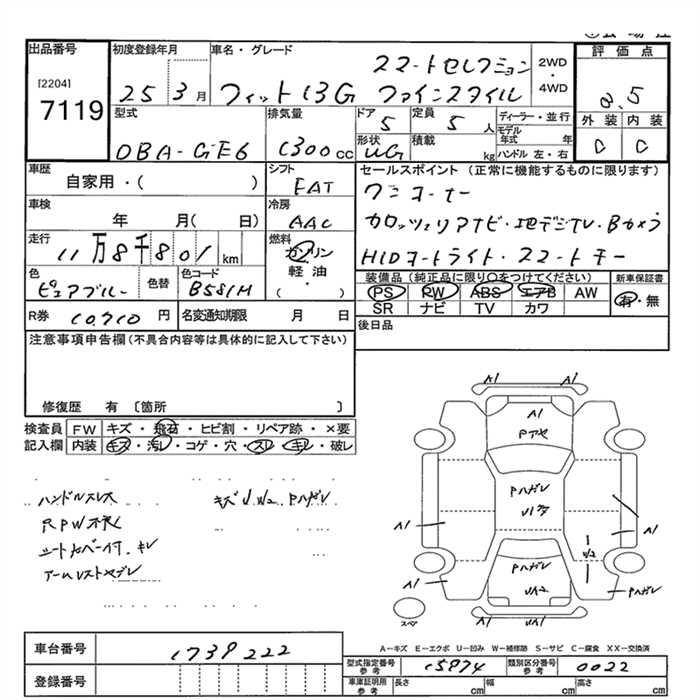 出品番号
[2204]
7119
初度登録年月
25 3月
車名・グレード
フィット 13G スマートセレクション
ファインスタイル
2WD
・
4WD
評価点
型式
DBA-GE6
排気量
1300cc
ドア
5
定員
5人
形状
積載
kg
ディーラー・並行
モデル年式 年
ハンドル 左・右
外装 内装
C C
車歴
自家用・( )
シフト
FAT
車検
年 月( 日)
冷房
AAC
走行
11万8千801km
燃料
ガソリン
軽油・
( )
色
ピュアブルー
色替
色コード
B581M
R券 10,710円
名変通知期限 月 日
セールスポイント(正常に機能するものに限ります)
ワンオーナー
カロッツェリアナビ・地デジTV・Bカメラ
HIDオートライト・スマートキー
装備品(純正品に限り○をつけてください)
PS PW ABS エアB AW
SR ナビ TV カワ
新車保証書
有・無
後日品
注意事項申告欄(不具合内容等は具体的に記入して下さい)
修復歴 有 〔箇所 〕
検査員記入欄
FW キズ・飛石・ヒビ割・リペア跡・×要
内装 キズ・汚レ・コゲ・穴・スレ・キレ・破レ
ハンドルスレ
キズ U W2 Pハガレ
RPW不良
シートカバー付 キレ
アームレストヤブレ
A1 A1
A1
Pアセ
Pハガレ
A1
A1
W2
Pハガレ
UA2
A1
Pハガレ
UA1
スペア
A-キズ E-エクボ U-凹み W-補修跡 S-サビ C-腐食 XX-交換済
車台番号 1739222
登録番号
型式指定番号 参考 15974
類別区分番号 参考 0022
車庫証明用 参考 長さ cm 幅 cm 高さ cm